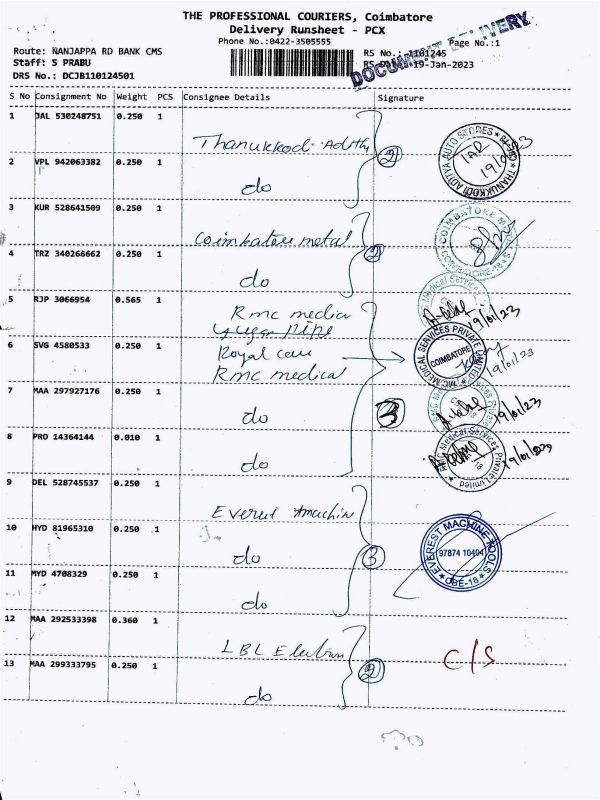 THE PROFESSIONAL COURIERS, Coimbatore
Delivery Runsheet - PCX
Phone No.:0422-3505555
Page No.:1
Route: NANJAPPA RD BANK CMS
RS No.: 1101245
Staff: S PRABU
RS Date: 19-Jan-2023
DRS No.: DCJB110124501
DOCUMENT DELIVERY
S No Consignment No Weight PCS Consignee Details Signature
1 JAL 530248751 0.250 1
Thanukkodi Adithy
2
THANUKKODI ADITYA AUTO STORES
19/01/23
2 VPL 942063382 0.250 1
do
3 KUR 528641509 0.250 1
Coimbatore metal
2
COIMBATORE-18
4 TRZ 340266662 0.250 1
do
5 RJP 3066954 0.565 1
Rmc media
Medical Services
19/01/23
pipe
6 SVG 4580533 0.250 1
Royal care
Rmc medical
RMC MEDICAL SERVICES PRIVATE LIMITED
COIMBATORE
19/01/23
7 MAA 297927176 0.250 1
do
3
19/01/23
8 PRO 14364144 0.010 1
do
RMC Medical Services Private Limited
19/01/23
9 DEL 528745537 0.250 1
Everest machin
10 HYD 81965310 0.250 1
do
3
EVEREST MACHINE TOOLS
97874 10404
CBE-18
11 MYD 4708329 0.250 1
do
12 MAA 292533398 0.360 1
LBL
C/S
13 MAA 299333795 0.250 1
2
do